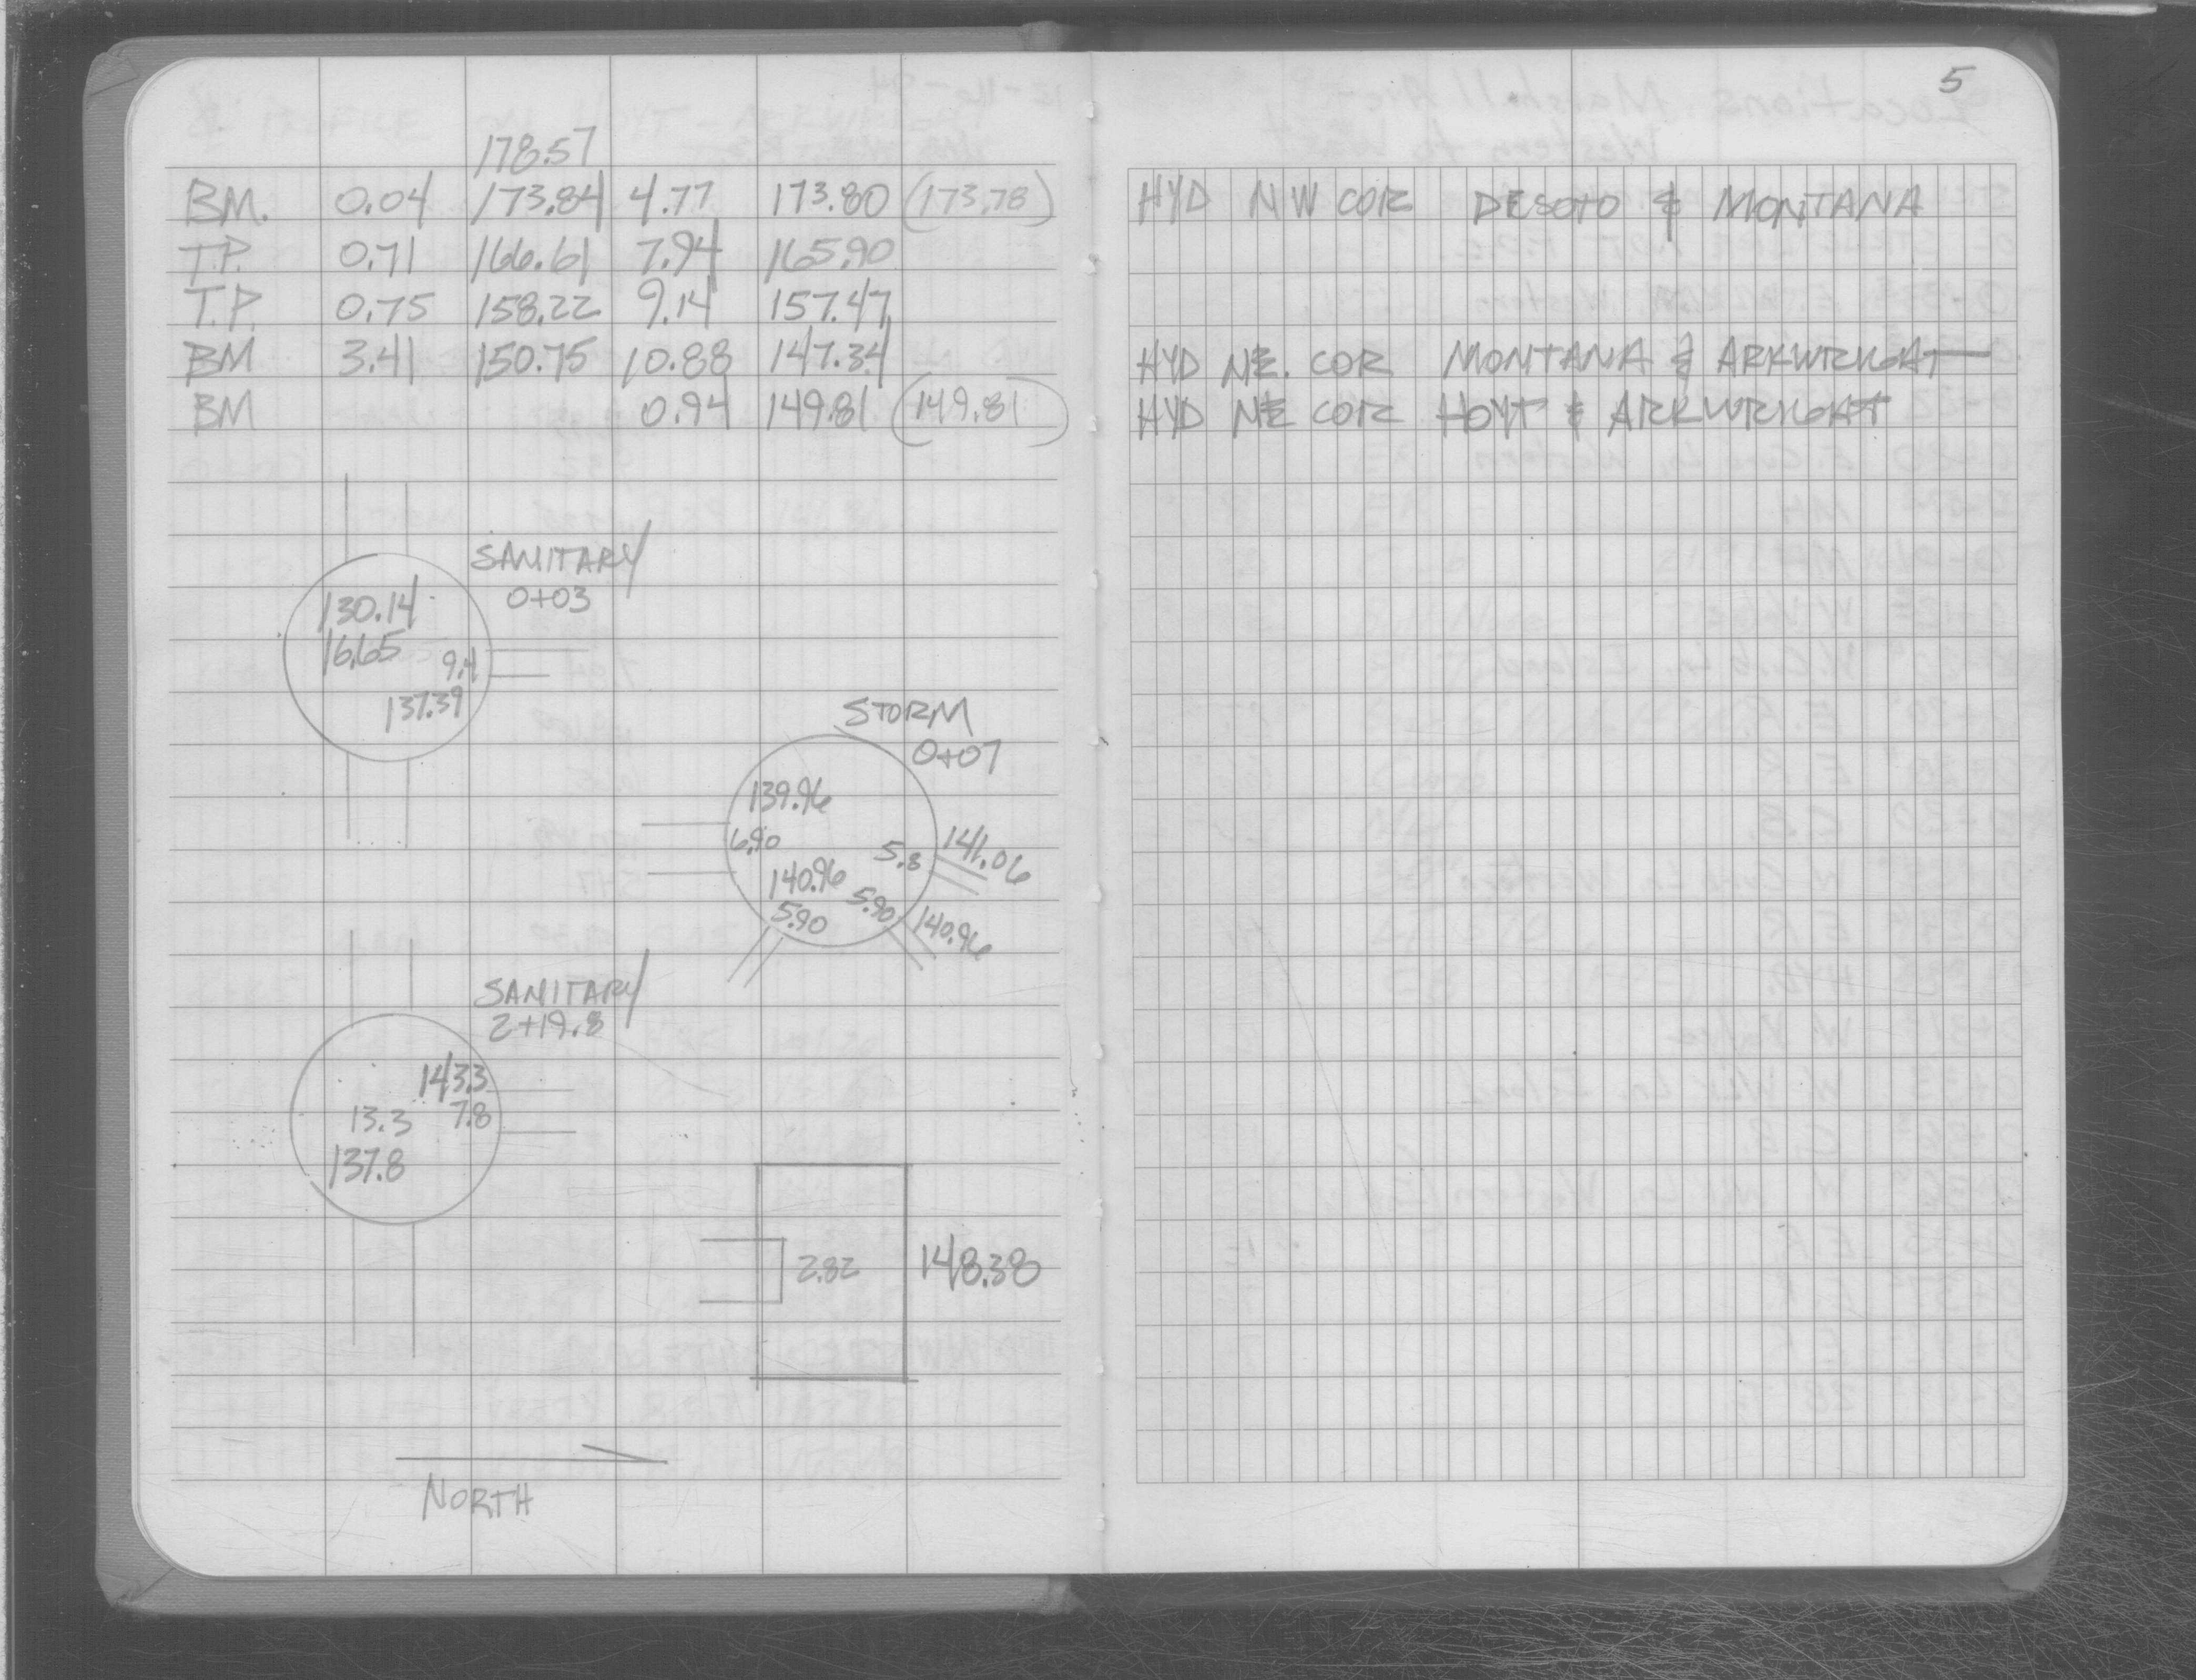 5
178.57
BM. 0.04 173.84 4.77 173.80 (173.78) HYD NW COR DESOTO & MONTANA
T.P. 0.71 166.61 7.94 165.90
T.P. 0.75 158.22 9.14 157.47
BM 3.41 150.75 10.88 147.34 HYD NE. COR MONTANA & ARKWRIGHT
BM 0.94 149.81 (149.81) HYD NE COR HOYT & ARKWRIGHT
SANITARY
0+03
130.14
16.65
9.4
137.39
STORM
0+07
139.96
6.90
5.8 141.06
140.96
5.90
5.90 140.96
SANITARY
2+19.8
143.3
13.3 7.8
137.8
2.82 148.38
NORTH